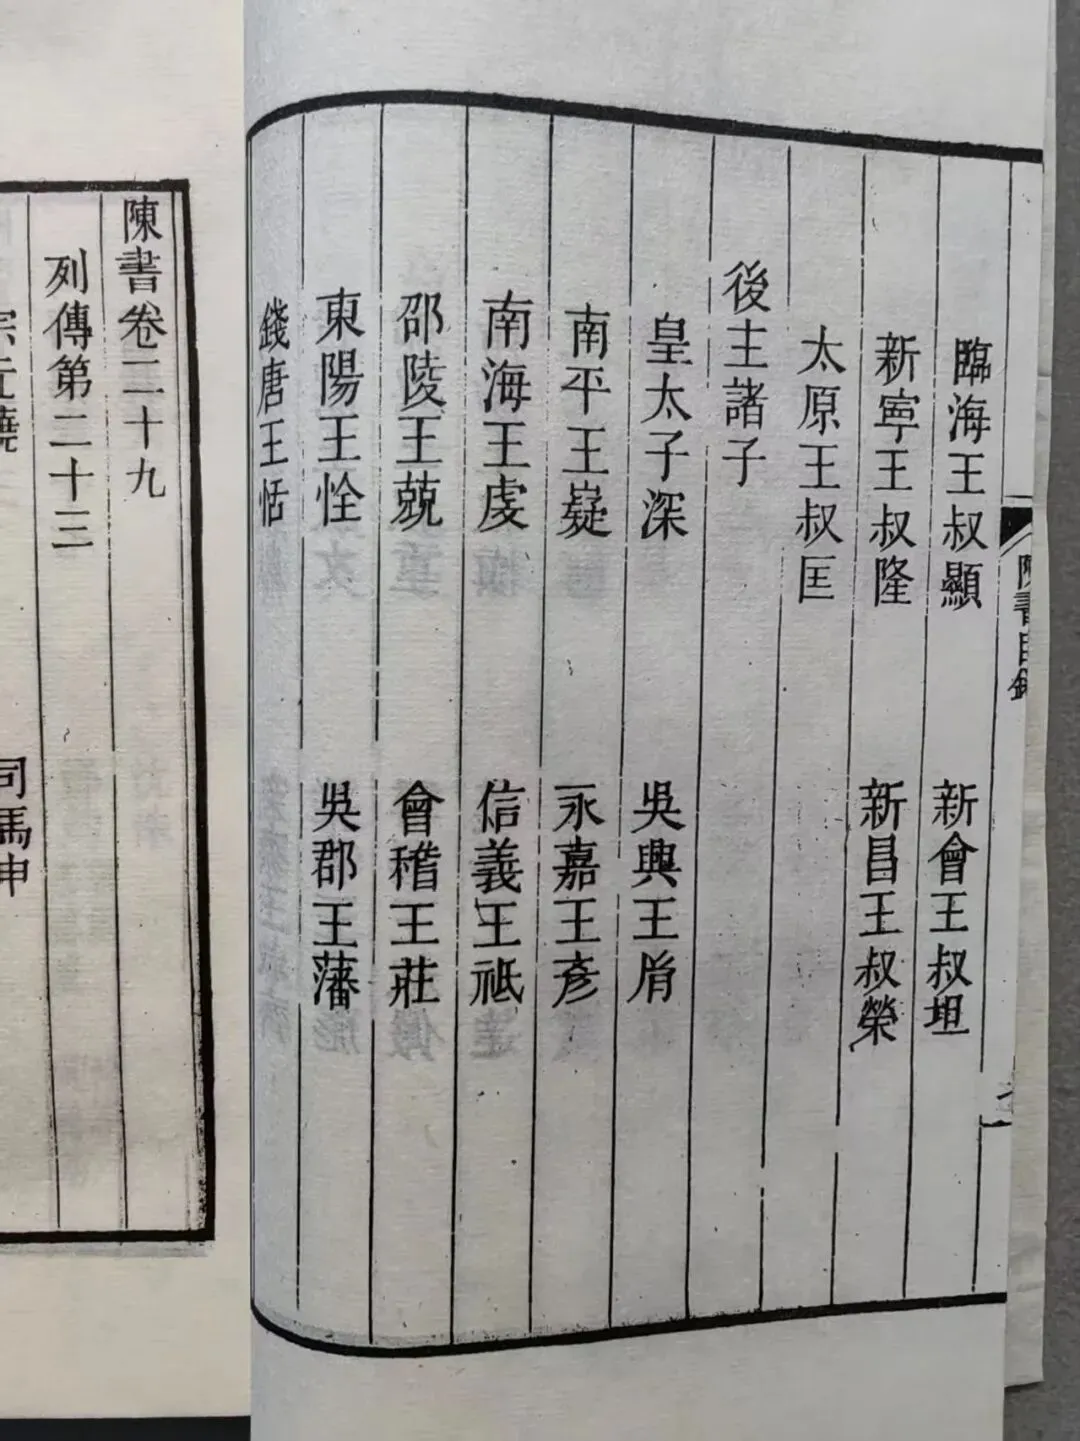 陳書目錄
臨海王叔顯 新會王叔坦
新寧王叔隆 新昌王叔榮
太原王叔匡
後主諸子
皇太子深 吳興王胤
南平王嶷 永嘉王彦
南海王虔 信義王祗
邵陵王兢 會稽王莊
東陽王恮 吳郡王藩
錢唐王恬
陳書卷二十九
列傳第二十三
宗元饒 司馬申